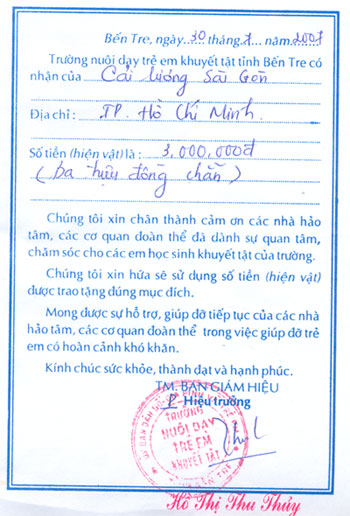 Bến Tre, ngày 30 tháng 1 năm 2007
Trường nuôi dạy trẻ em khuyết tật tỉnh Bến Tre có
nhận của Cải lương Sài Gòn
Địa chỉ : TP. Hồ Chí Minh.
Số tiền (hiện vật) là : 3,000,000đ
( Ba triệu đồng chẵn )
Chúng tôi xin chân thành cảm ơn các nhà hảo
tâm, các cơ quan đoàn thể đã dành sự quan tâm,
chăm sóc cho các em học sinh khuyết tật của trường.
Chúng tôi xin hứa sẽ sử dụng số tiền (hiện vật)
được trao tặng đúng mục đích.
Mong được sự hỗ trợ, giúp đỡ tiếp tục của các nhà
hảo tâm, các cơ quan đoàn thể trong việc giúp đỡ trẻ
em có hoàn cảnh khó khăn.
Kính chúc sức khỏe, thành đạt và hạnh phúc.
TM. BAN GIÁM HIỆU
P. Hiệu trưởng
TRƯỜNG
NUÔI DẠY
TRẺ EM
KHUYẾT TẬT
Hồ Thị Thu Thủy